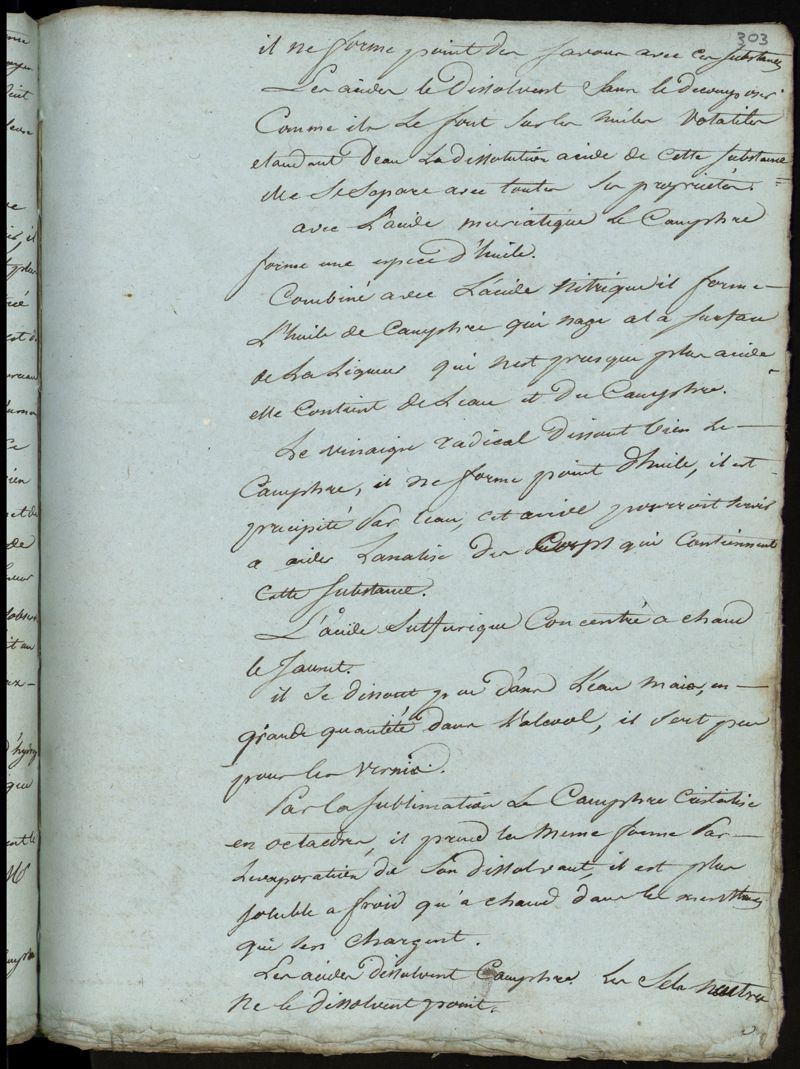 303
il ne forme point des savons avec ces substances
Les acides le Dissolvent sans le decomposer
Comme ils le font sur les huiles volatiles
etandant D'eau La dissolution acide de cette substance
elle se separe avec toutes ses proprietés.
avec L'acide muriatique le Camphre
forme une espece d'huile.
Combiné avec L'acide nitrique il forme
L'huile de Camphre qui nage a la surface
de La Liqueur qui n'est presque plus acide
elle Contient de L'eau et du Camphre.
Le vinaigre radical Dissout bien Le
Camphre, il ne forme point d'huile, il est
precipité Par l'eau, cet acide pourroit servir
a aider L'analise des Corps qui Contiennent
cette substance.
L'acide Sulfurique Concentré a chaud
le jaunit.
il se dissout peu dans L'eau mais, en
grande quantité dans L'alcool, il sert peu
pour les vernis.
Par la sublimation Le Camphre cristalise
en octaedre, il prend la meme forme Par
L'evaporation de son dissolvant, il est plus
soluble a froid qu'a chaud dans les menstrues
qui s'en chargent.
Les acides dissolvent Camphre. Les Sels neutres
Ne le dissolvent point.